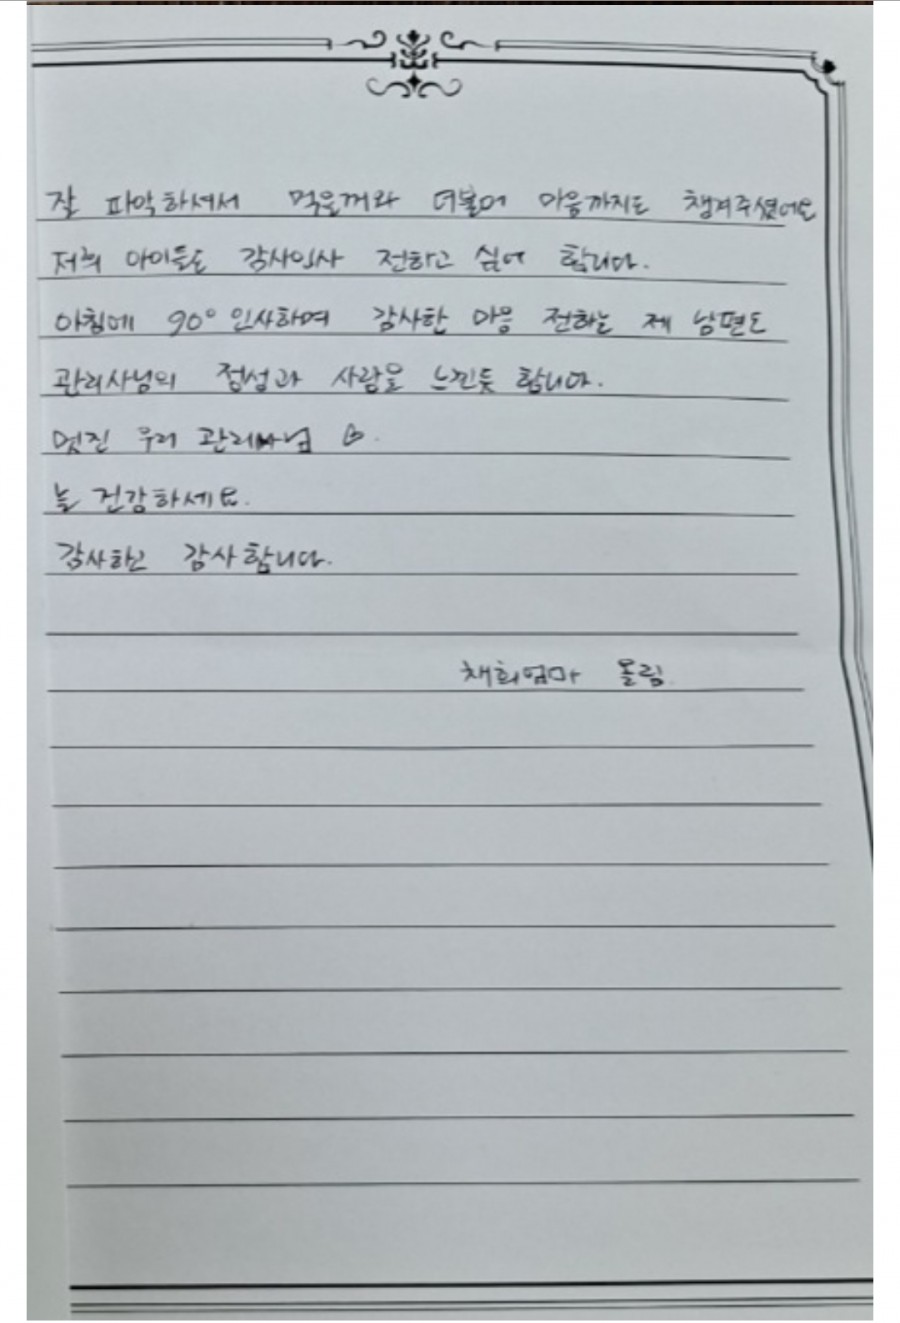 잘 파악하셔서 먹을꺼와 더불어 마음까지도 챙겨주셨어요
저희 아이들도 감사인사 전하고 싶어 합니다.
아침에 90° 인사하며 감사한 마음 전하는 제 남편도
관리사님의 정성과 사랑을 느낀듯 합니다.
멋진 우리 관리사님
늘 건강하세요.
감사하고 감사합니다.
채희엄마 올림.